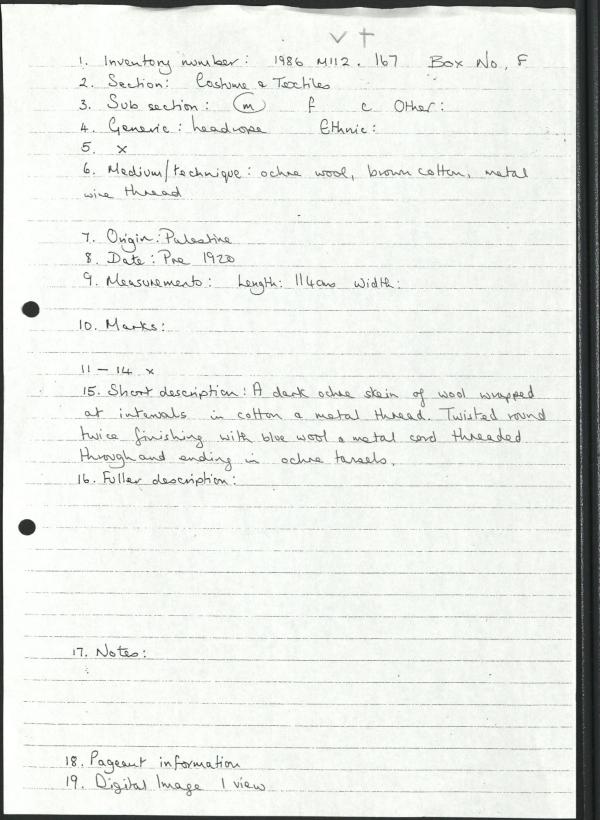 V †
1. Inventory number: 1986 M112. 167 Box No. F
2. Section: Costume & Textiles
3. Sub section: m f c Other:
4. Generic: headrope Ethnic:
5. x
6. Medium/technique: ochre wool, brown cotton, metal
wire thread
7. Origin: Palestine
8. Date: Pre 1920
9. Measurements: Length: 114cms Width:
10. Marks:
11 - 14 x
15. Short description: A dark ochre skein of wool wrapped
at intervals in cotton & metal thread. Twisted round
twice finishing with blue wool & metal cord threaded
through and ending in ochre tassels.
16. Fuller description:
17. Notes:
18. Pageant information
19. Digital Image 1 view